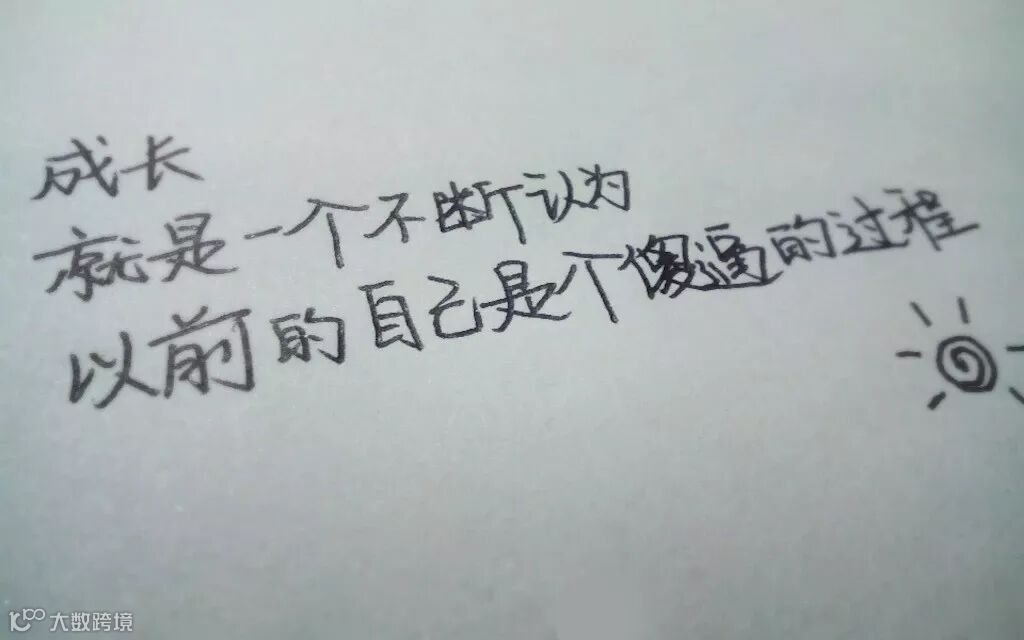 成长
就是一个不断认为
以前的自己是个傻逼的过程
大数跨境